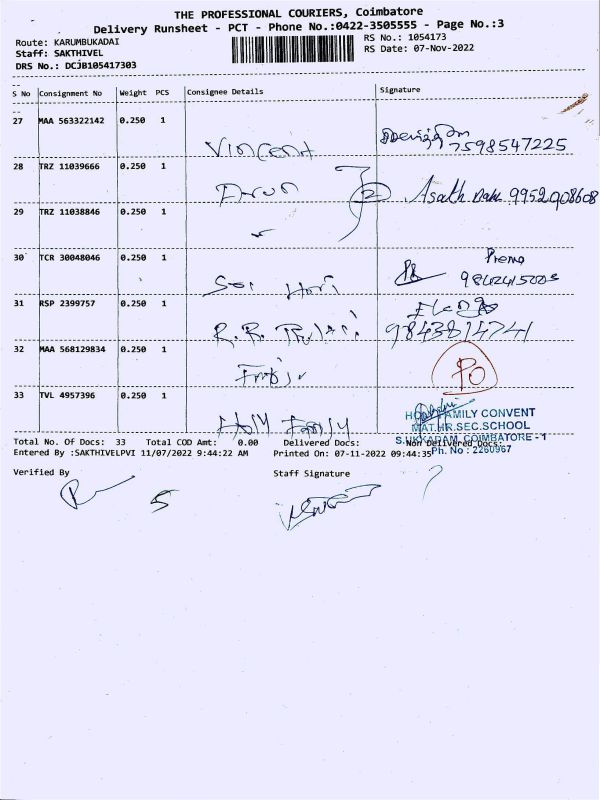 THE PROFESSIONAL COURIERS, Coimbatore
Delivery Runsheet - PCT - Phone No.:0422-3505555 - Page No.:3
Route: KARUMBUKADAI
RS No.: 1054173
Staff: SAKTHIVEL
RS Date: 07-Nov-2022
DRS No.: DCJB105417303
S No Consignment No Weight PCS Consignee Details Signature
27 MAA 563322142 0.250 1
Vincent 7598547225
28 TRZ 11039666 0.250 1
Arun 9952908608
29 TRZ 11038846 0.250 1
30 TCR 30048046 0.250 1
Prema
Sri Hari
31 RSP 2399757 0.250 1
R.R. 9843814741
32 MAA 568129834 0.250 1
PO
33 TVL 4957396 0.250 1
Holy Family
HOLY FAMILY CONVENT
MAT.HR.SEC.SCHOOL
S.UKKADAM, COIMBATORE - 1
Ph. No : 2260967
Total No. Of Docs: 33 Total COD Amt: 0.00 Delivered Docs: Non Delivered Docs:
Entered By :SAKTHIVELPVI 11/07/2022 9:44:22 AM Printed On: 07-11-2022 09:44:35
Verified By Staff Signature
5